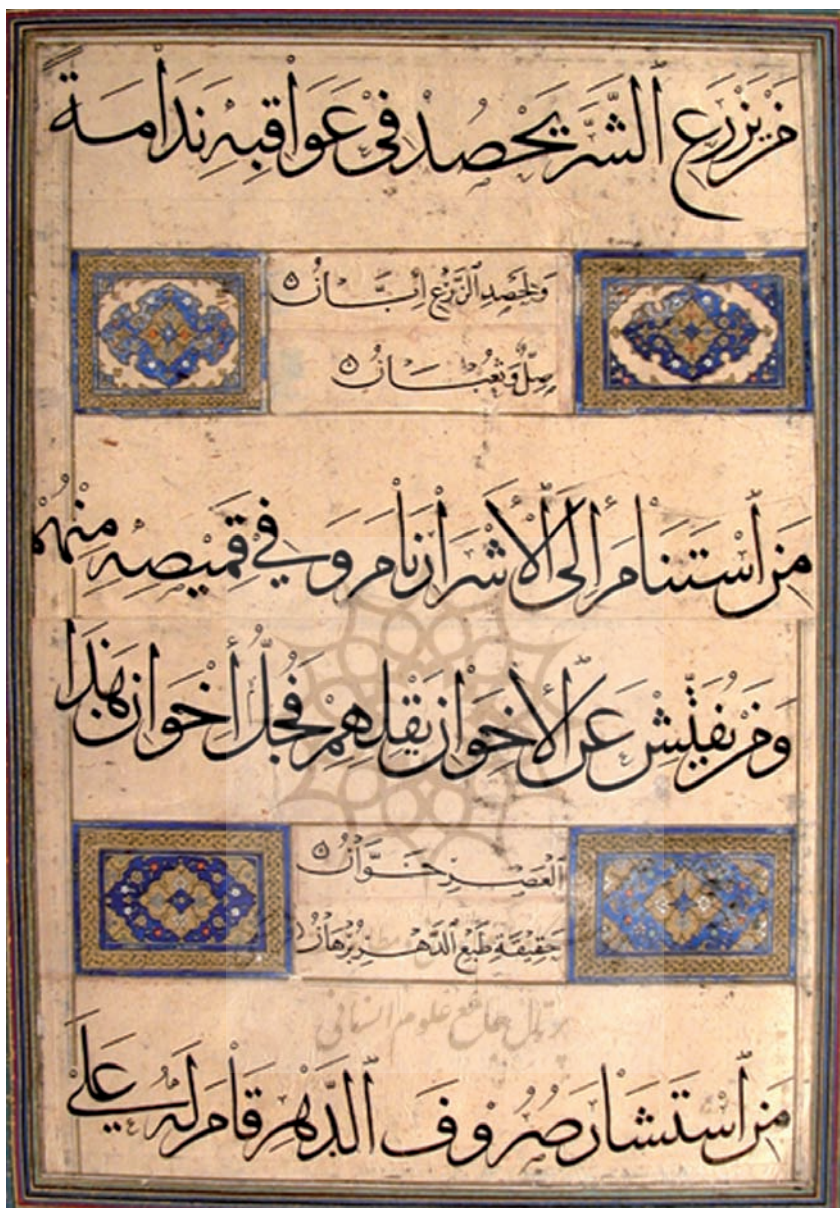 مَن يَزْرَعِ الشَّرَّ يَحْصُدْ فِي عَوَاقِبِهِ نَدَامَةً
وَلِحَصْدِ الزَّرْعِ إِبَّانُ
صِلٌّ وَثُعْبَانُ
مَنِ اسْتَنَامَ إِلَى الْأَشْرَارِ نَامَ وَفِي قَمِيصِهِ مِنْهُمْ
وَمَن يُفَتِّشْ عَنِ الْإِخْوَانِ يَقْلِهِمْ فَجُلُّ إِخْوَانِ هَذَا
الْعَصْرِ خَوَّانُ
حَقِيقَةِ طَبْعِ الدَّهْرِ بُرْهَانُ
پرتال جامع علوم انسانی
مَنِ اسْتَشَارَ صُرُوفَ الدَّهْرِ قَامَ لَهُ عَلَى